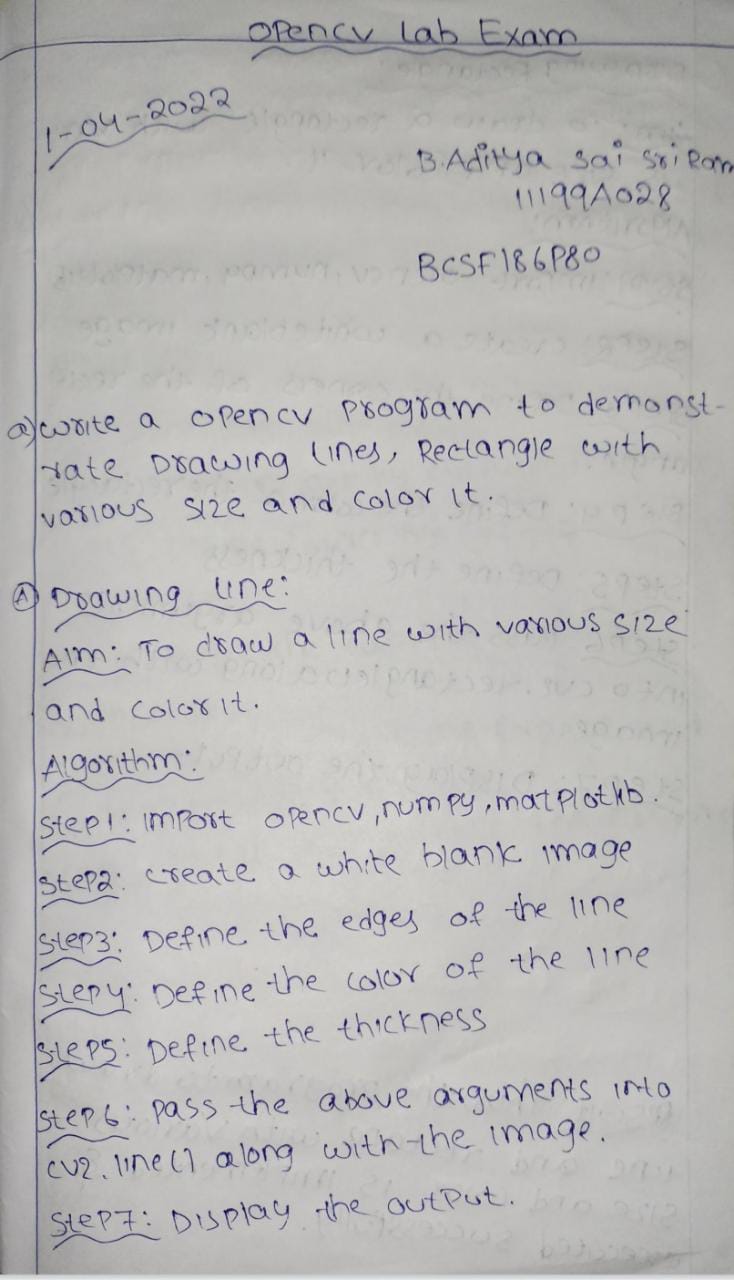 Opencv Lab Exam
1-04-2022
B.Aditya Sai Sri Ram
11199A028
BCSF186P80
a) Write a opencv program to demonst-
rate Drawing lines, Rectangle with
various size and color it.
A) Drawing line:
Aim: To draw a line with various size
and color it.
Algorithm:
Step1: Import opencv, numpy, matplotlib.
Step2: create a white blank image
Step3: Define the edges of the line
Step4: Define the color of the line
Step5: Define the thickness
Step6: pass the above arguments into
cv2.line() along with the image.
Step7: Display the output.